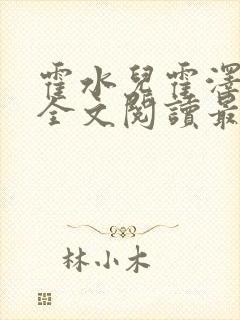 霍水兒霍澤
全文閱讀最
林小木